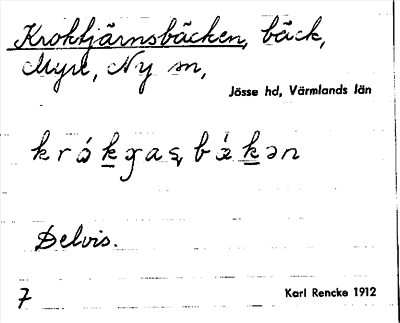 Kroktjärnsbäcken, bäck,
Myre, Ny sn,
Jösse hd, Värmlands län
Delvis.
7
Karl Rencke 1912